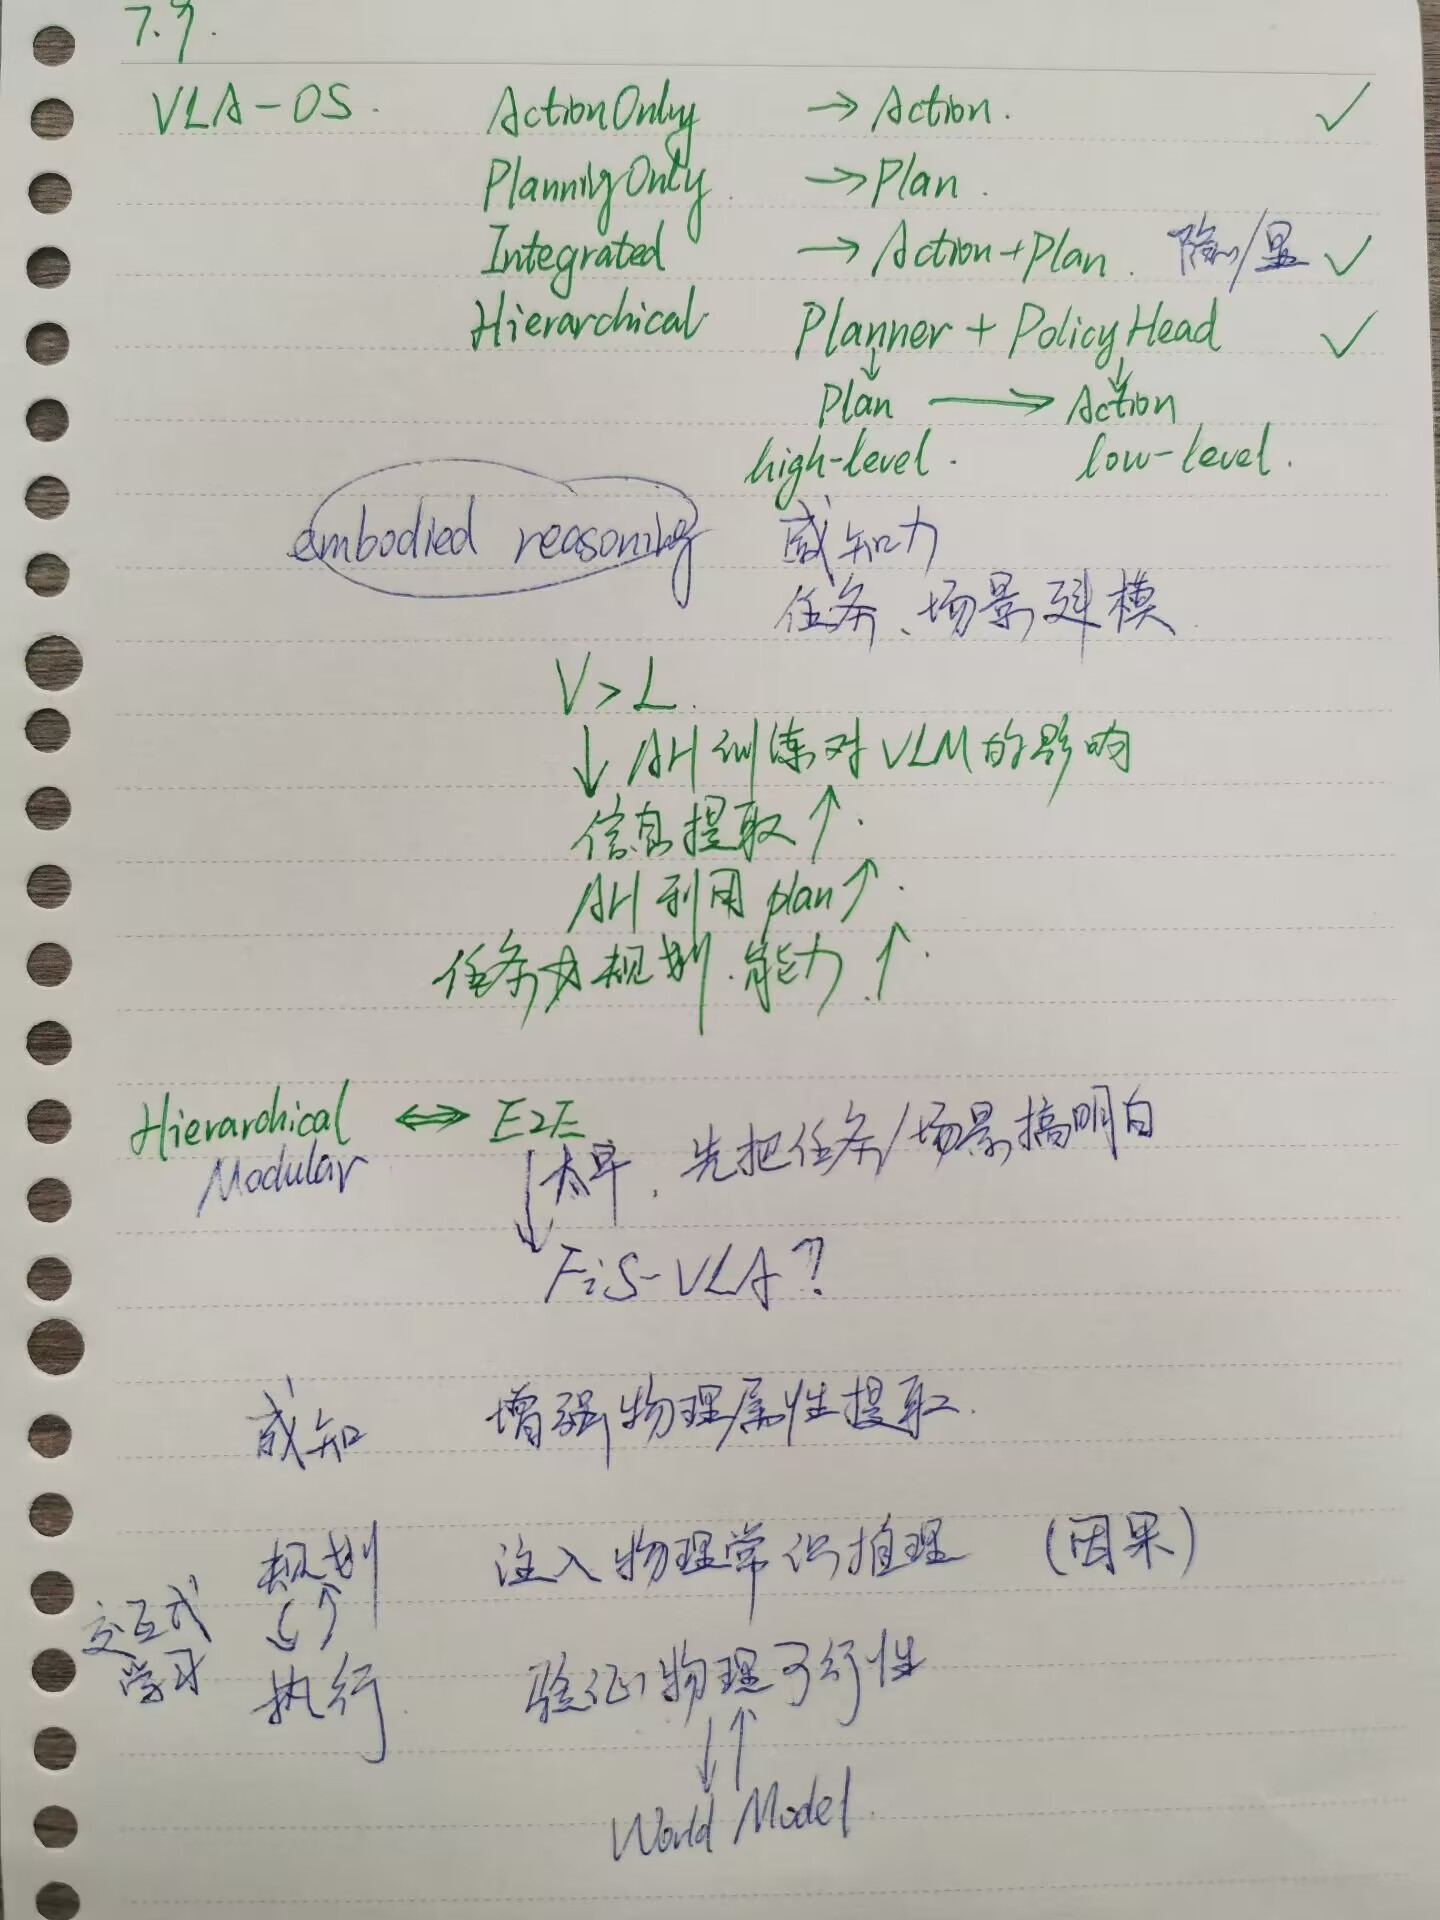 7.9.
VLA-OS. ActionOnly → Action. ✓
PlanningOnly → Plan.
Integrated → Action+Plan. 隐/显 ✓
Hierarchical Planner + Policy Head ✓
↓ ↓
Plan → Action
high-level. low-level.
embodied reasoning 感知力
任务、场景建模
V > L.
↓ AH训练对VLM的影响
信息提取↑.
AH利用plan↑.
任务规划能力↑.
Hierarchical ⇔ E2E
Modular ↓太早, 先把任务/场景搞明白
FiS-VLA?
感知 增强物理属性提取.
规划 注入物理常识推理 (因果)
交互式 ↓↑
学习
执行. 验证物理可行性
↓↑
World Model.